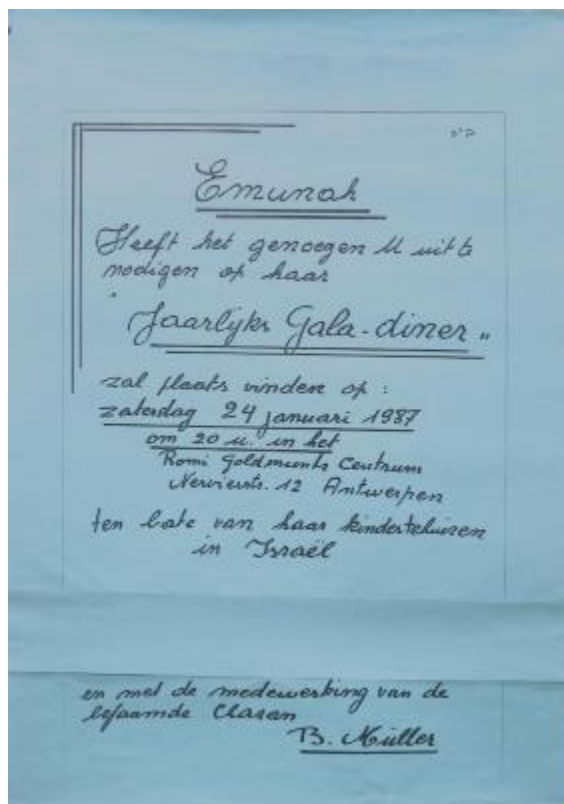 Emunah
Heeft het genoegen U uit te
nodigen op haar
"Jaarlijks Gala-diner"
zal plaats vinden op :
zaterdag 24 januari 1987
om 20 u. in het
Romi Goldmuntz Centrum
Nervierstr. 12 Antwerpen
ten bate van haar kindertehuizen
in Israël
en met de medewerking van de
befaamde Chazan
B. Müller